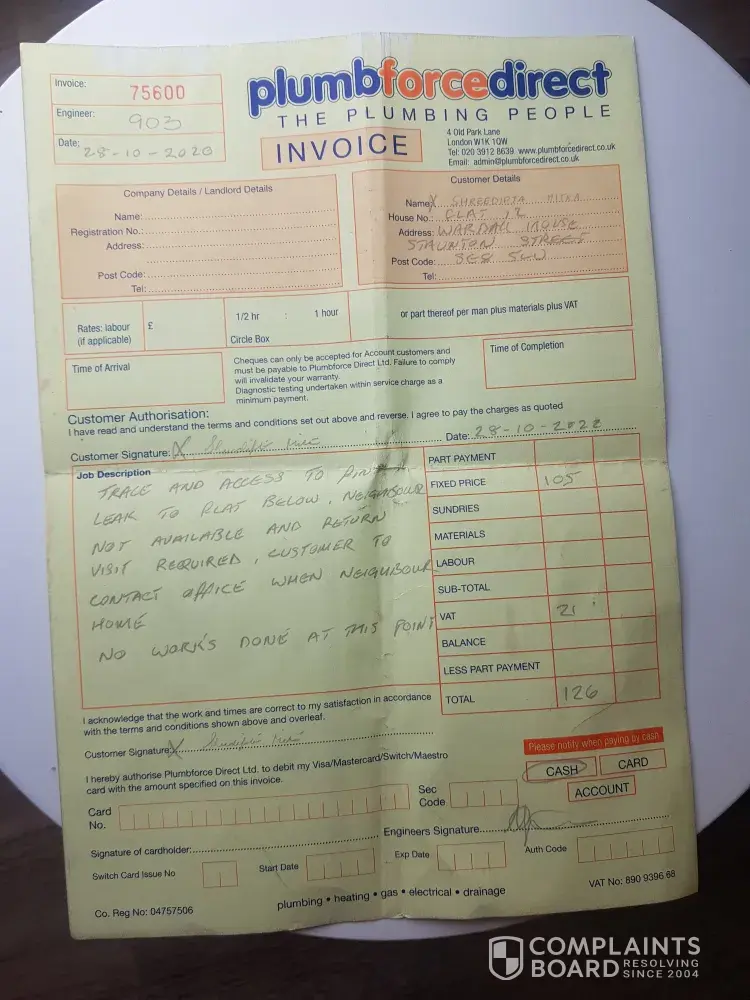 Invoice: 75600
Engineer: 903
Date: 28-10-2020
plumbforcedirect
THE PLUMBING PEOPLE
INVOICE
4 Old Park Lane
London W1K 1QW
Tel: 020 3912 8639 www.plumbforcedirect.co.uk
Email: admin@plumbforcedirect.co.uk
Company Details / Landlord Details
Name:
Registration No.:
Address:
Post Code:
Tel:
Customer Details
Name: X
House No.: FLAT 12
Address: WARDALL HOUSE
STAUNTON STREET
Post Code: SE8
Tel:
Rates: labour
(if applicable)
£
1/2 hr : 1 hour
Circle Box
or part thereof per man plus materials plus VAT
Time of Arrival
Cheques can only be accepted for Account customers and
must be payable to Plumbforce Direct Ltd. Failure to comply
will invalidate your warranty.
Diagnostic testing undertaken within service charge as a
minimum payment.
Time of Completion
Customer Authorisation:
I have read and understand the terms and conditions set out above and reverse. I agree to pay the charges as quoted
Customer Signature: X
Date: 28-10-2020
Job Description
TRACE AND ACCESS TO
LEAK TO FLAT BELOW, NEIGHBOUR
NOT AVAILABLE AND RETURN
VISIT REQUIRED, CUSTOMER TO
CONTACT OFFICE WHEN NEIGHBOUR
HOME
NO WORK'S DONE AT THIS POINT
PART PAYMENT
FIXED PRICE 105
SUNDRIES
MATERIALS
LABOUR
SUB-TOTAL
VAT 21
BALANCE
LESS PART PAYMENT
TOTAL 126
I acknowledge that the work and times are correct to my satisfaction in accordance
with the terms and conditions shown above and overleaf.
Customer Signature: X
Please notify when paying by cash
CASH CARD
ACCOUNT
I hereby authorise Plumbforce Direct Ltd. to debit my Visa/Mastercard/Switch/Maestro
card with the amount specified on this invoice.
Card
No.
Sec
Code
Engineers Signature
Signature of cardholder:
Switch Card Issue No
Start Date
Exp Date
Auth Code
Co. Reg No: 04757506
plumbing • heating • gas • electrical • drainage
VAT No: 890 9396 68
COMPLAINTS
BOARD RESOLVING
SINCE 2004